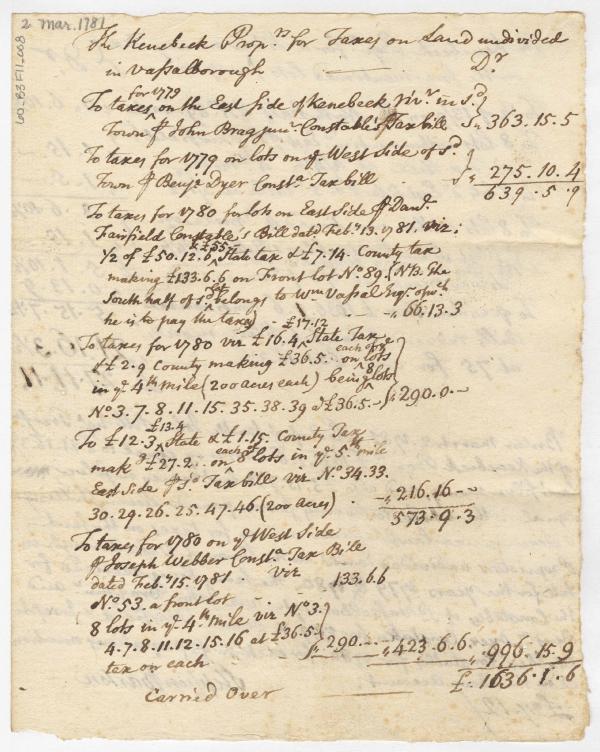 2 Mar. 1781
60_B3F11_008
The Kenebeck Prop.rs for Taxes on Land undivided
in Vassalborough — D.r
for 1779
To taxes on the East side of Kenebeck riv.r in s.d
Town ⅌ John Brag jun.r Constable's Tax bill 363.15.5
To taxes for 1779 on lots on y.e West Side of s.d
Town ⅌ Benj.a Dyer Const.a Tax bill 275.10.4
639.5.9
To taxes for 1780 for lots on East Side ⅌ Dan.l
Fairfield Constable's Bill dat.d Feb.y 13. 1781. viz;
& £55..
1/2 of £50.12.6 State tax & £7.14. County tax
making £133.6.6 on Front lot N.o 89. (NB. The
lot
South half of s.d belongs to W.m Vassal Esq.r of w.ch
he is to pay the taxes) 66.13.3
£17.12
To taxes for 1780 viz £16.4 State Tax
each of y.e
& £2.9 County making £36.5 on lots
8
in y.e 4.th mile (200 acres each) being lots
N.o 3.7.8.11.15.35.38.39 @ £36.5 — 290.0.—
£13.4
To £12.3 State & £1.15. County Tax
each of
mak.g £27.2.. on 8 lots in y.e 5.th mile
East Side ⅌ s.d Tax bill viz. N.o 34.33.
30.29.26.25.47.46 (200 acres) — 216.16 —
573.9.3
To taxes for 1780 on y.e West Side
⅌ Joseph Webber Const.a Tax Bill
dated Feb.y 15. 1781. viz 133.6.6
N.o 53. a front lot
8 lots in y.e 4.th mile viz N.o 3.
4.7.8.11.12.15.16 at £36.5 290.. — 423.6.6 996.15.9
tax on each £ 1636.1.6
Carried Over